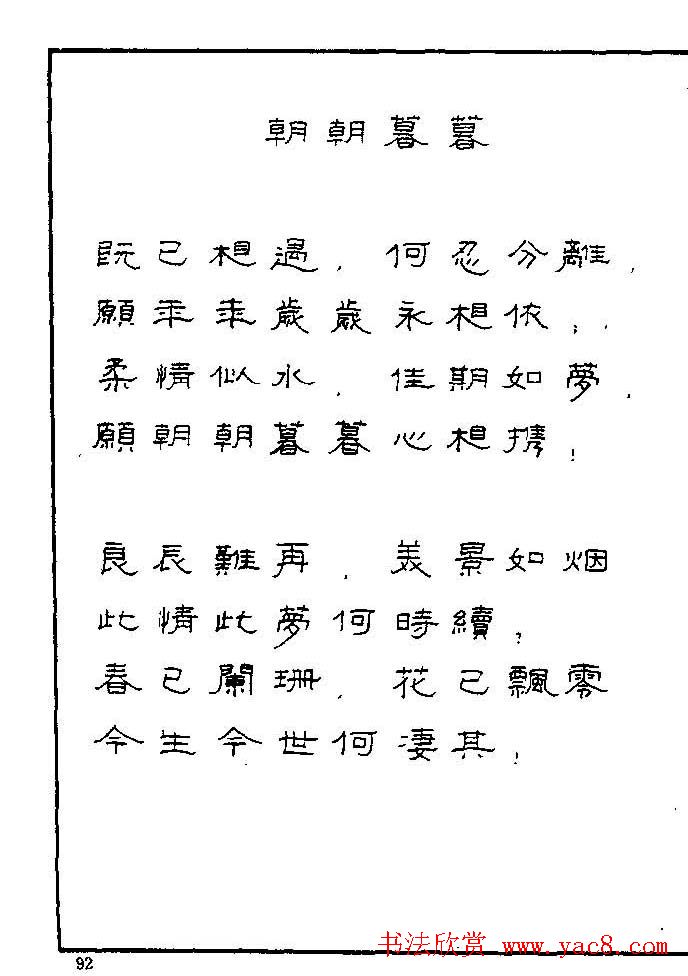 朝朝暮暮
既已想遇，何忍分離，
願年年歲歲永相依；
柔情似水，佳期如夢，
願朝朝暮暮心相携！
良辰難再，美景如烟
此情此夢何時續？
春已闌珊，花已飄零
今生今世何淒其！
92
书法欣赏 www.yac8.com